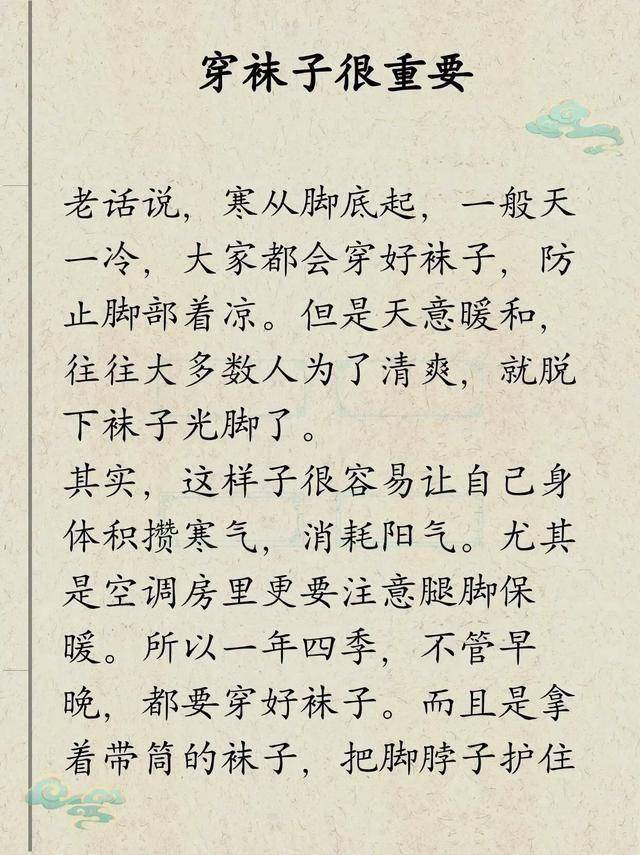 穿袜子很重要
老话说，寒从脚底起，一般天
一冷，大家都会穿好袜子，防
止脚部着凉。但是天意暖和，
往往大多数人为了清爽，就脱
下袜子光脚了。
其实，这样子很容易让自己身
体积攒寒气，消耗阳气。尤其
是空调房里更要注意腿脚保
暖。所以一年四季，不管早
晚，都要穿好袜子。而且是拿
着带筒的袜子，把脚脖子护住